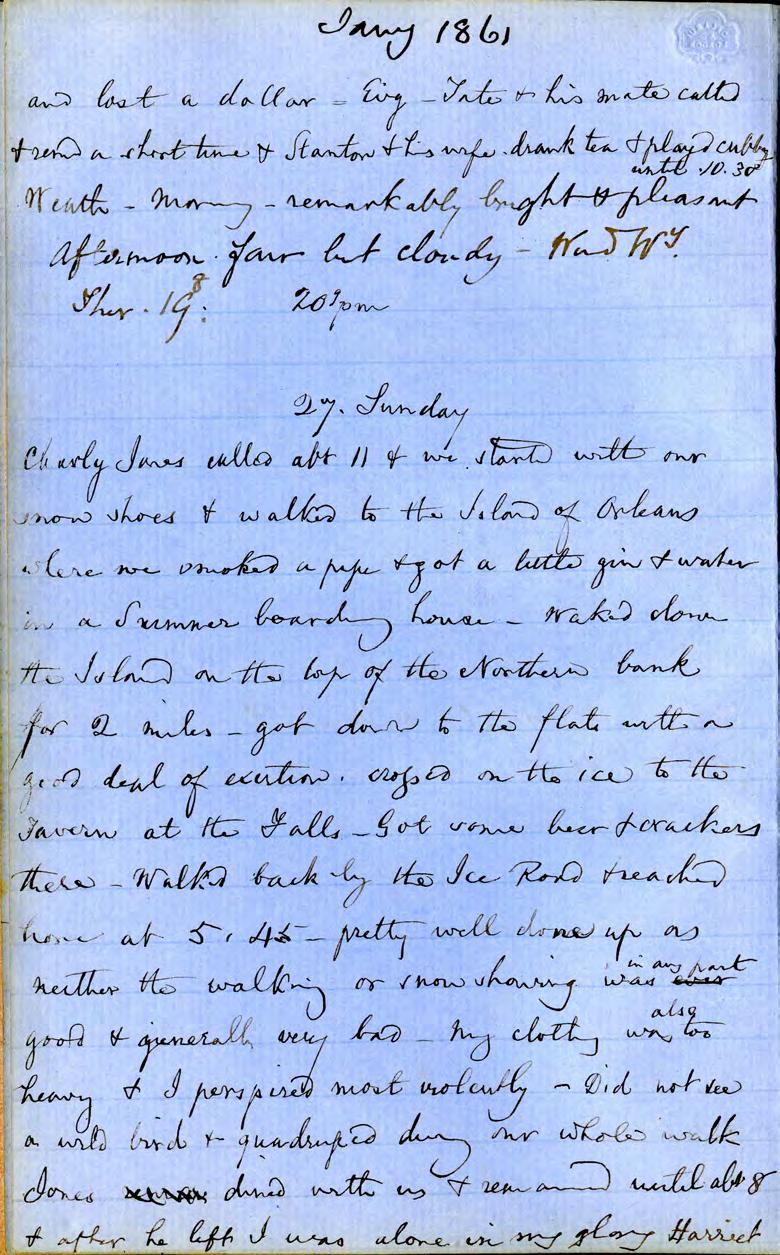 Jany 1861
and lost a dollar - Evg - Tate & his mate called
& remd a short time & Stanton & his wife drank tea & playd cribbg
until 10.30
Weath - Morng - remarkably bright & pleasant
Afternoon fair but cloudy - Wind Wy.
Ther. 19°: 20° pm
27. Sunday
Charly Jones called abt 11 & we startd with our
snow shoes & walked to the Island of Orleans
where we smoked a pipe & got a little gin & water
in a Summer boarding house - Waked down
the Island on the top of the Northern bank
for 2 miles - got down to the flats with a
good deal of exertion. crossed on the ice to the
Tavern at the Falls - Got some beer & crackers
there - Walkd back by the Ice Road & reached
home at 5.45 - pretty well done up as
neither the walking or snow showing was in any part ever
good & generally very bad - My clothg was also too
heavy & I perspired most violently - Did not see
a wild bird or quadruped durg our whole walk
Jones dined with us & remained until abt 8
& after he left I was alone in my glory Harriet